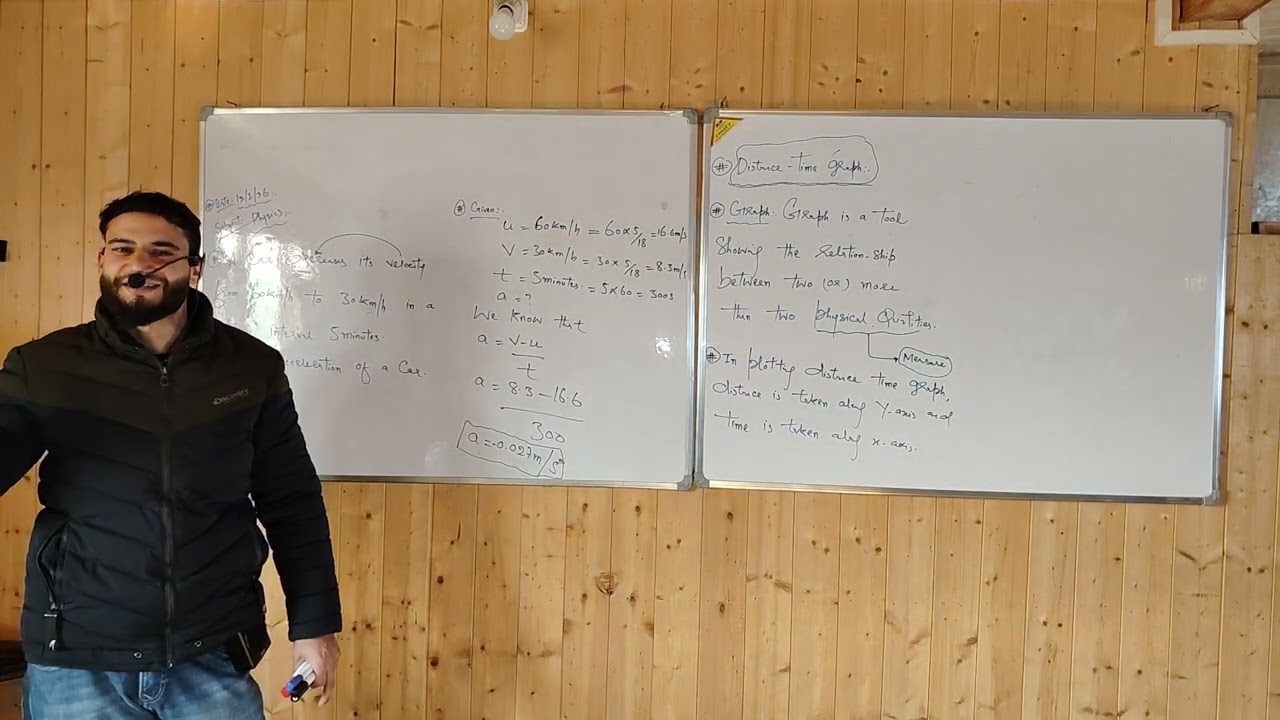 Date: 12/3/26:-
Subject: Physics:-
Car decreases its velocity
from 60km/h to 30km/h in a
interval 5minutes.
acceleration of a Car.
# Given:-
u = 60km/h = 60×5/18 = 16.6m/s
V = 30km/h = 30×5/18 = 8.3m/s
t = 5minutes. = 5×60 = 300s
a = ?
We know that
a = V-u
t
a = 8.3-16.6
300
a = -0.027m/s²
# Distance-Time graph:-
# Graph: Graph is a Tool
Showing the relation-ship
between two (or) more
than two physical Quntities.
Measure
# In plotting distance time graph,
distance is taken along Y-axis and
Time is taken along x-axis.
Discovery